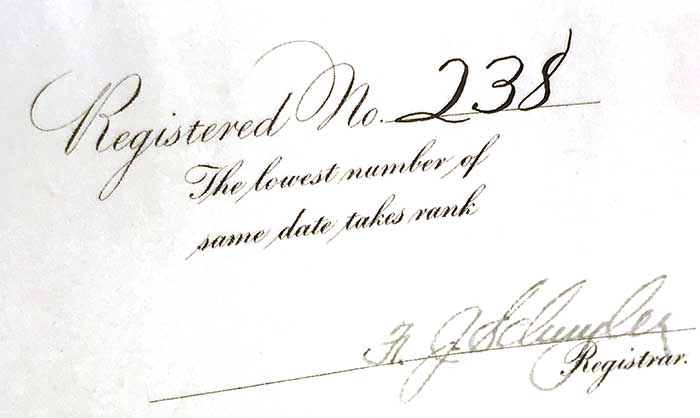 Registered No. 238
The lowest number of
same date takes rank
Registrar.